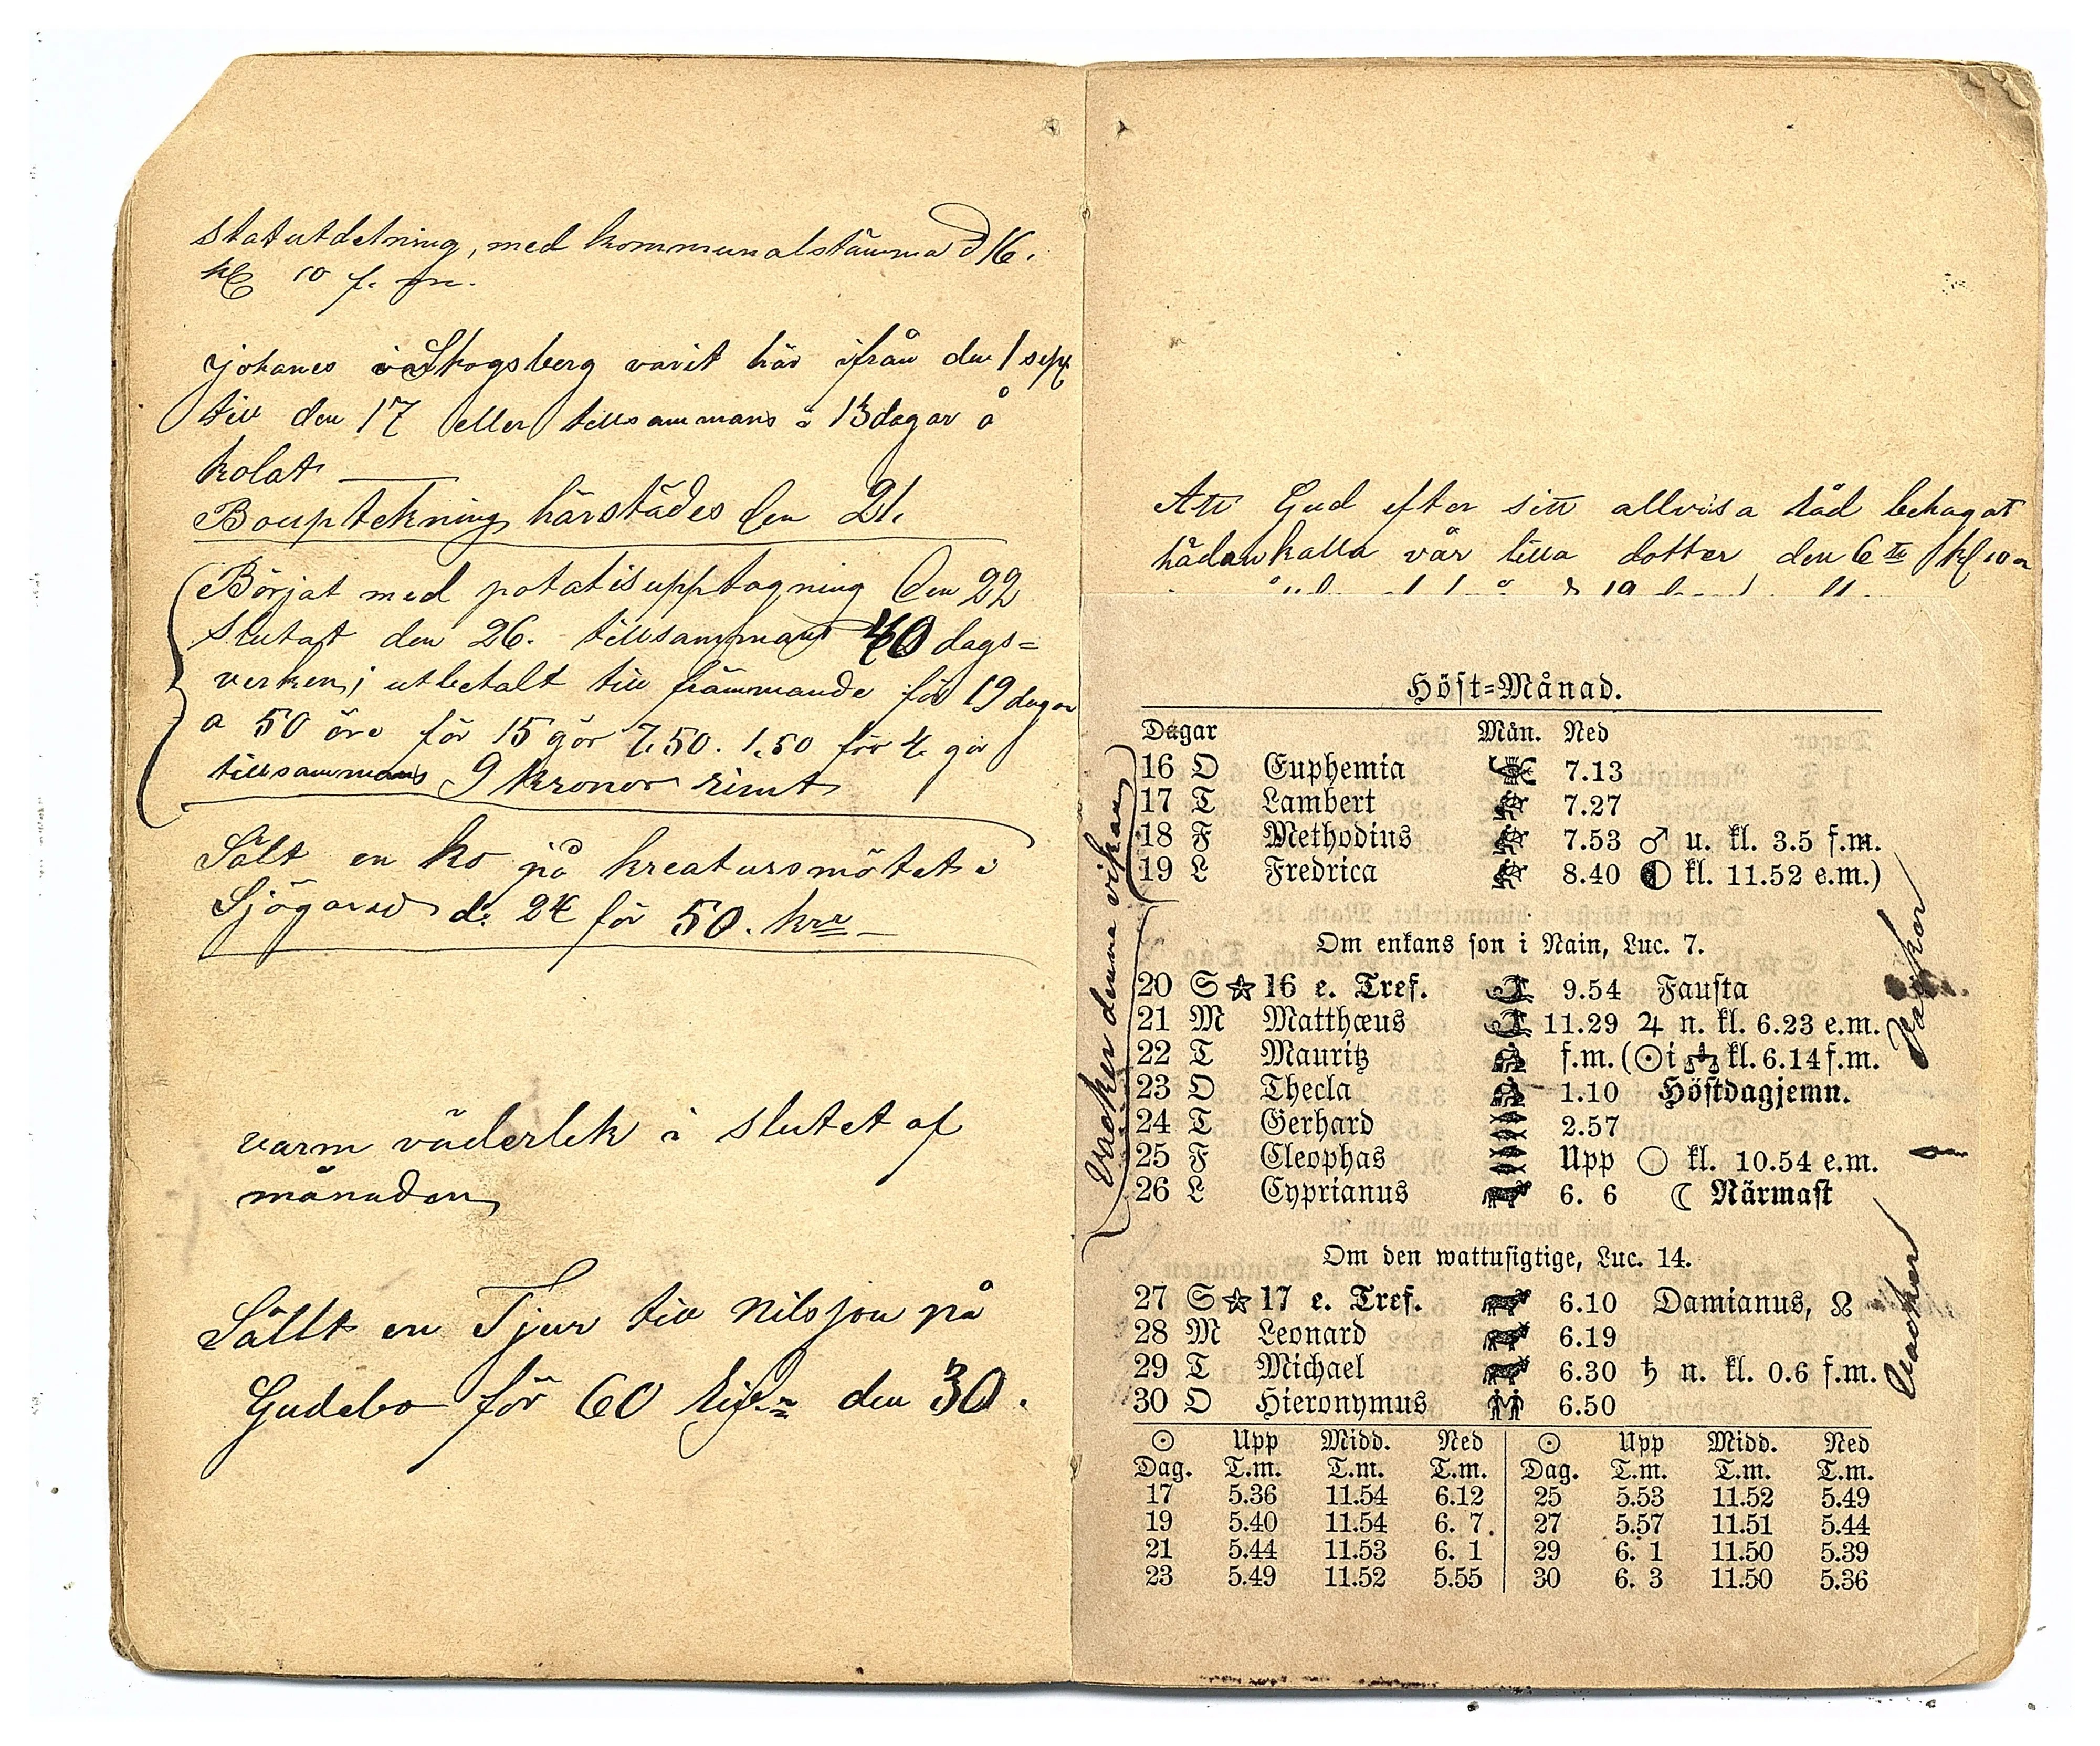 statutdelning, med kommunalstämma d 16.
kl 10 f. m.
johanes i Skogsberg varit här ifrån den 1 sept
till den 17 eller tillsammans 13 dagar å
kolat
Bouptekning härstädes den 21.
Börjat med potatisupptagning den 22
slutat den 26. tillsammans 40 dags=
verken; utbetalt till främmande för 19 dagar
a 50 öre för 15 gör 7,50. 1,50 för 4. gör
tillsammans 9 kronor
Sålt en ko på kreatursmötet i
Sjögared d: 24 för 50. kr
varm väderlek i slutet af
månaden
Sållt en Tjur till nilsson på
Gudebo för 60 den 30.
Att Gud efter sitt allvisa råd behagat
hädankalla vår lilla dotter den 6te kl 10
Höst=Månad.
Dagar Mån. Ned
16 O Euphemia 7.13
17 T Lambert 7.27
18 F Methodius 7.53 ♂ u. kl. 3.5 f.m.
19 L Fredrica 8.40 ◐ kl. 11.52 e.m.)
Om enkans son i Nain, Luc. 7.
20 S ☆ 16 e. Tref. 9.54 Fausta
21 M Matthæus 11.29 ♃ n. kl. 6.23 e.m.
22 T Mauritz f.m. (☉ i ♎ kl. 6.14 f.m.
23 O Thecla 1.10 Höstdagjemn.
24 T Gerhard 2.57
25 F Cleophas Upp ○ kl. 10.54 e.m.
26 L Cyprianus 6. 6 ☾ Närmast
Om den wattusigtige, Luc. 14.
27 S ☆ 17 e. Tref. 6.10 Damianus, ☊
28 M Leonard 6.19
29 T Michael 6.30 ♄ n. kl. 0.6 f.m.
30 O Hieronymus 6.50
☉ Upp Midd. Ned ☉ Upp Midd. Ned
Dag. T.m. T.m. T.m. Dag. T.m. T.m. T.m.
17 5.36 11.54 6.12 25 5.53 11.52 5.49
19 5.40 11.54 6. 7. 27 5.57 11.51 5.44
21 5.44 11.53 6. 1 29 6. 1 11.50 5.39
23 5.49 11.52 5.55 30 6. 3 11.50 5.36
Vacker denna vikan
Vacker
Vacker